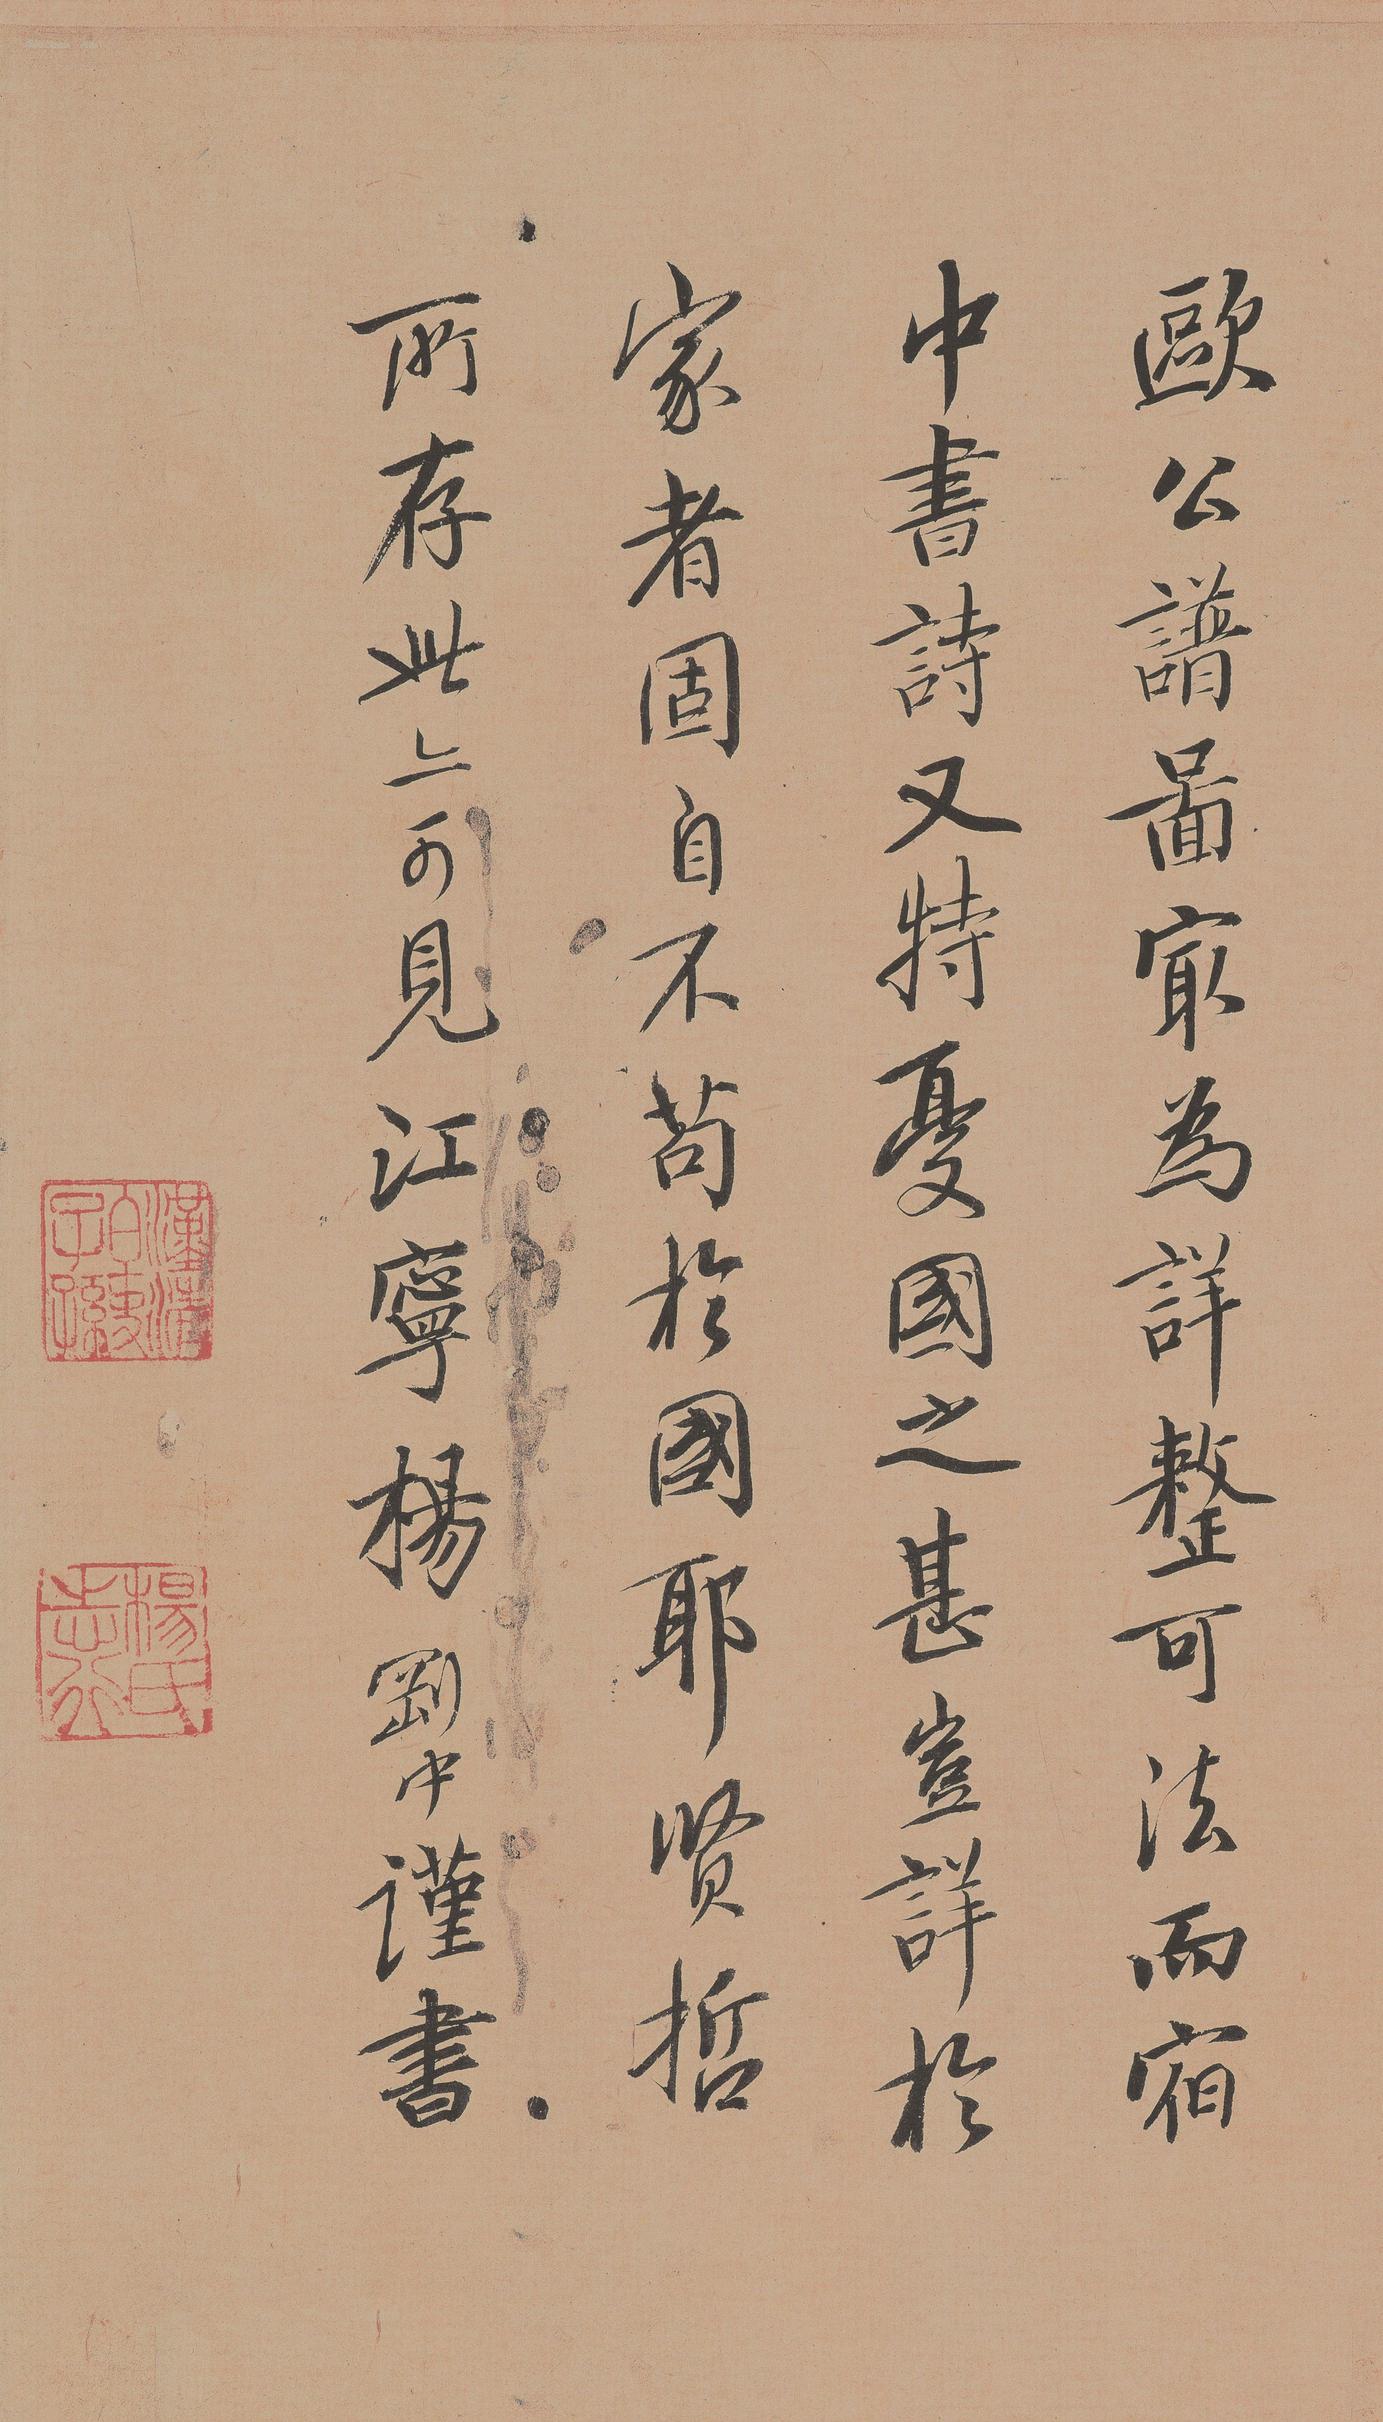 歐公譜啚冣為詳整可法而宿
中書詩又特憂國之甚豈詳於
家者固自不苟於國耶賢哲
所存此亦可見江寧楊剛中謹書
漢清白吏子孫
楊氏志行